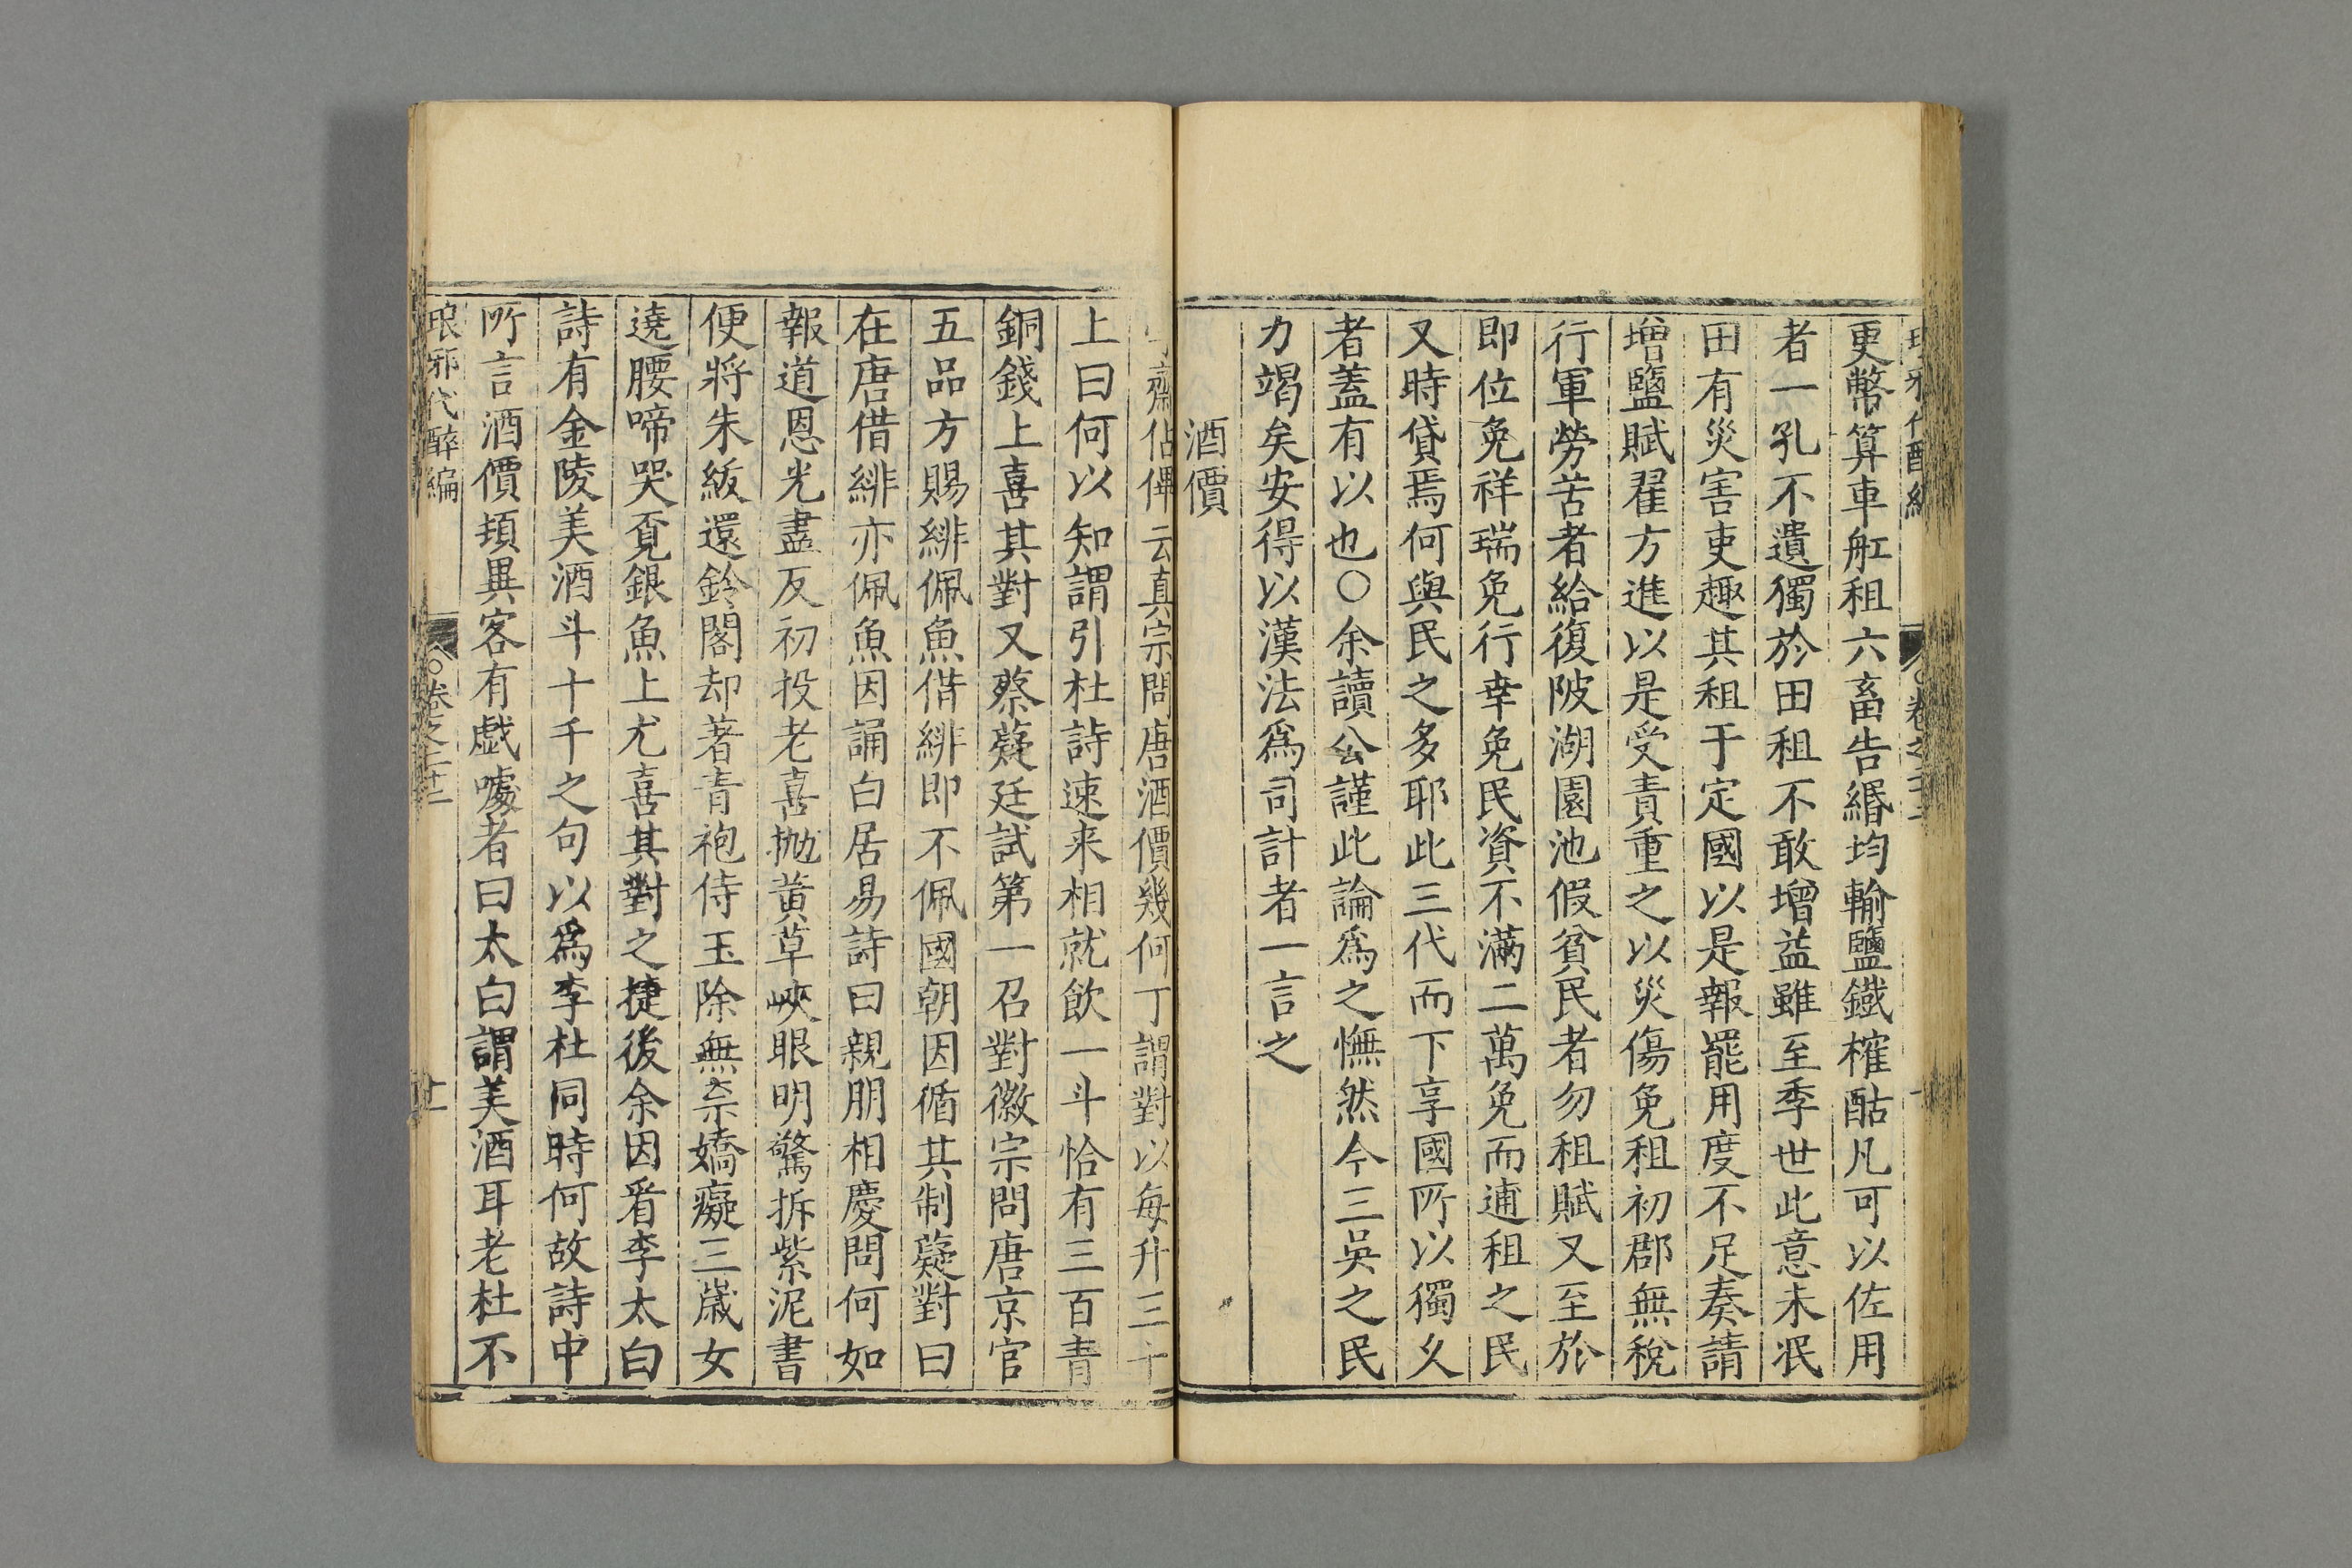 更幣算車舡租六畜告緡均輸鹽鐵榷酤凡可以佐用
者一孔不遺獨於田租不敢增益雖至季世此意未泯
田有災害吏趣其租于定國以是報罷用度不足奏請
增鹽賦翟方進以是受責重之以災傷免租初郡無稅
行軍勞苦者給復陂湖園池假貧民者勿租賦又至於
即位免祥瑞免行幸免民資不滿二萬免而逋租之民
又時貸焉何與民之多耶此三代而下享國所以獨久
者蓋有以也○余讀公謹此論為之憮然今三吳之民
力竭矣安得以漢法為司計者一言之
酒價
齋佔𠌯云真宗問唐酒價幾何丁謂對以每升三十
上曰何以知謂引杜詩速来相就飲一斗恰有三百青
銅錢上喜其對又蔡薿廷試第一召對徽宗問唐京官
五品方賜緋佩魚借緋即不佩國朝因循其制薿對曰
在唐借緋亦佩魚因誦白居易詩曰親朋相慶問何如
報道恩光盡反初投老喜抛黃草峽眼明驚拆紫泥書
便將朱紱還鈴閣却著青袍侍玉除無柰嬌癡三歲女
遶腰啼哭覔銀魚上尤喜其對之捷後余因看李太白
詩有金陵美酒斗十千之句以爲李杜同時何故詩中
所言酒價頓異客有戱噱者曰太白謂美酒耳老杜不
琅邪代醉編 卷之二十二 十一